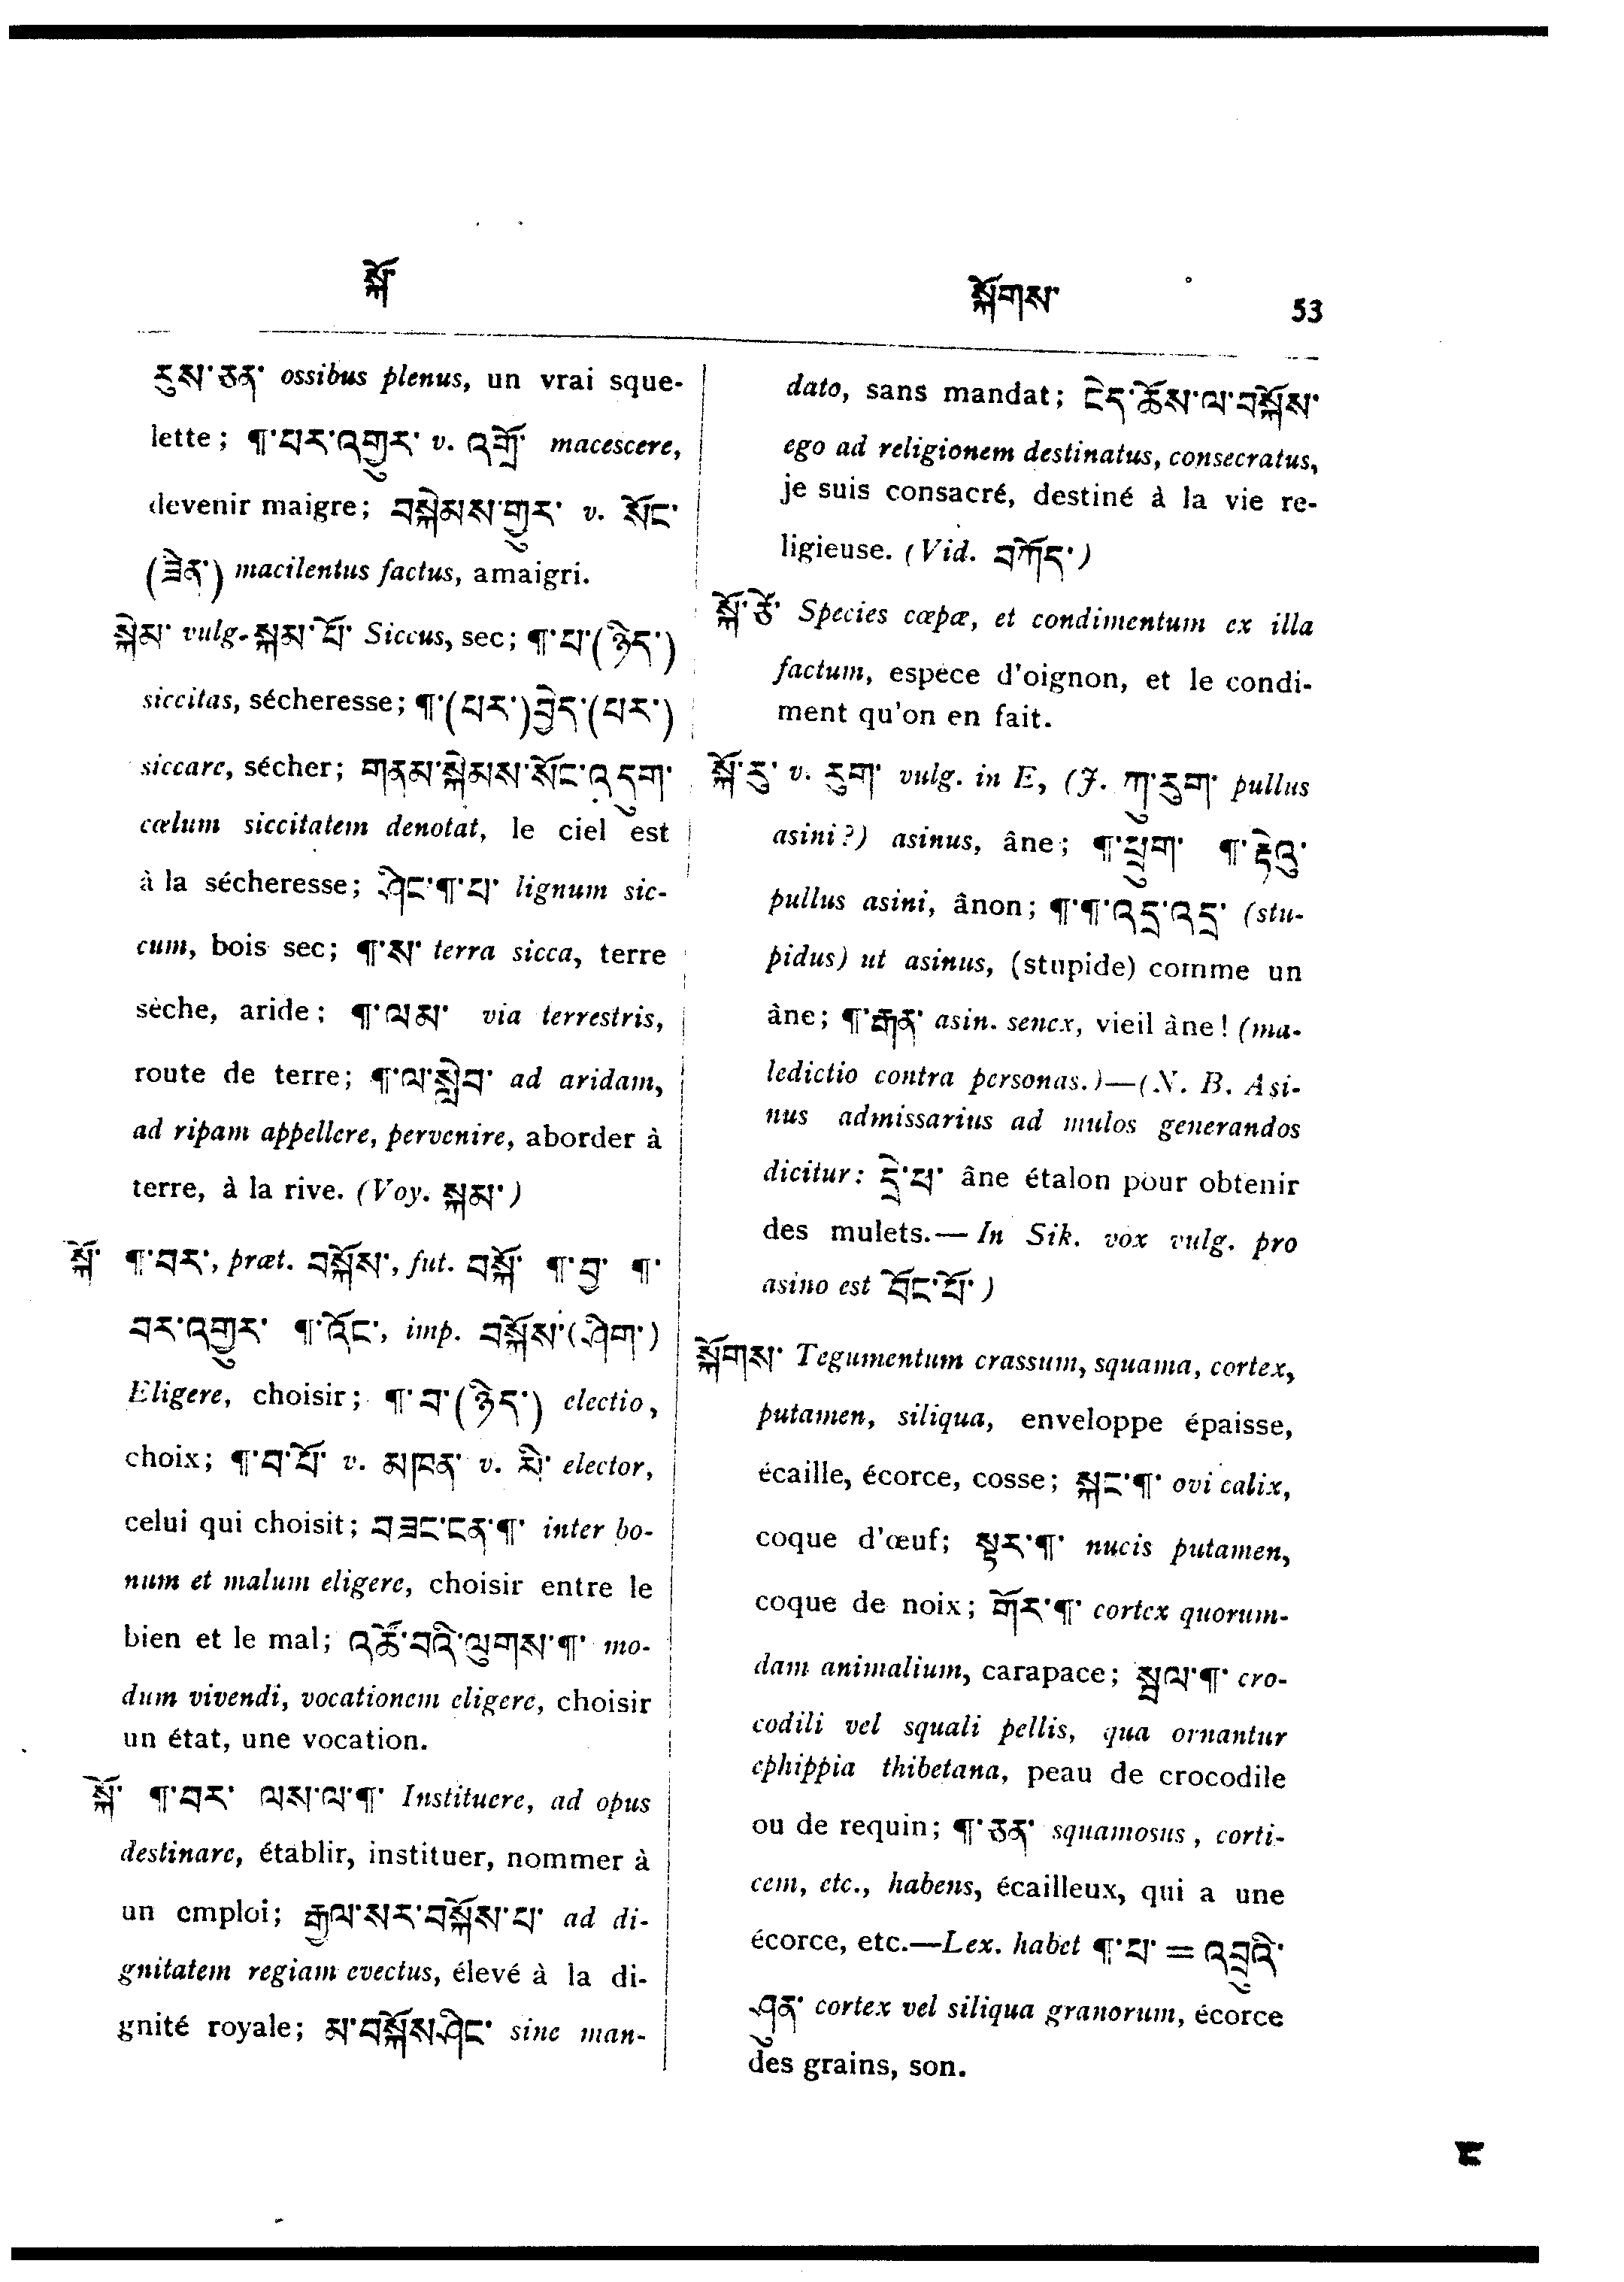 སྐོ་
སྐོགས་ 53
རུས་ཅན་ ossibus plenus, un vrai sque-
lette; ¶་པར་འགྱུར་ v. འགྲོ་ macescere,
devenir maigre; བསྐེམས་གྱུར་ v. སོང་
(ཟིན་) macilentus factus, amaigri.
སྐེམ་ vulg. སྐམ་པོ་ Siccus, sec; ¶་པ་(ཉིད་)
siccitas, sécheresse; ¶་(པར་)བྱེད་(པར་)
siccare, sécher; གནམ་སྐེམས་སོང་འདུག་
cœlum siccitatem denotat, le ciel est
à la sécheresse; ཤིང་¶་པ་ lignum sic-
cum, bois sec; ¶་ས་ terra sicca, terre
sèche, aride; ¶་ལམ་ via terrestris,
route de terre; ¶་ལ་སླེབ་ ad aridam,
ad ripam appellere, pervenire, aborder à
terre, à la rive. (Voy. སྐམ་)
སྐོ་ ¶་བར་, præt. བསྐོས་, fut. བསྐོ་ ¶་བྱ་ ¶་
བར་འགྱུར་ ¶་འོང་, imp. བསྐོས་(ཤིག་)
Eligere, choisir; ¶་བ་(ཉིད་) electio,
choix; ¶་བ་པོ་ v. མཁན་ v. མི་ elector,
celui qui choisit; བཟང་ངན་¶་ inter bo-
num et malum eligere, choisir entre le
bien et le mal; འཚོ་བའི་ལུགས་¶་ mo-
dum vivendi, vocationem eligere, choisir
un état, une vocation.
སྐོ་ ¶་བར་ ལས་ལ་¶་ Instituere, ad opus
destinare, établir, instituer, nommer à
un emploi; རྒྱལ་སར་བསྐོས་པ་ ad di-
gnitatem regiam evectus, élevé à la di-
gnité royale; མ་བསྐོས་ཤིང་ sine man-
dato, sans mandat; ངེད་ཆོས་ལ་བསྐོས་
ego ad religionem destinatus, consecratus,
je suis consacré, destiné à la vie re-
ligieuse. (Vid. བཀོད་)
སྐོ་ཙེ་ Species cœpæ, et condimentum ex illa
factum, espèce d'oignon, et le condi-
ment qu'on en fait.
སྐོ་རུ་ v. རུག་ vulg. in E, (J. ཀུ་རུག་ pullus
asini?) asinus, âne; ¶་ཕྲུག་ ¶་རྟེའུ་
pullus asini, ânon; ¶་¶་འདྲ་འདྲ་ (stu-
pidus) ut asinus, (stupide) comme un
âne; ¶་རྒན་ asin. senex, vieil âne! (ma-
ledictio contra personas.)—(N. B. Asi-
nus admissarius ad mulos generandos
dicitur: དྲེ་ཕ་ âne étalon pour obtenir
des mulets.—In Sik. vox vulg. pro
asino est བོང་པོ་)
སྐོགས་ Tegumentum crassum, squama, cortex,
putamen, siliqua, enveloppe épaisse,
écaille, écorce, cosse; སྐང་¶་ ovi calix,
coque d'œuf; སྟར་¶་ nucis putamen,
coque de noix; གོར་¶་ cortex quorum-
dam animalium, carapace; སྦལ་¶་ cro-
codili vel squali pellis, qua ornantur
ephippia thibetana, peau de crocodile
ou de requin; ¶་ཅན་ squamosus, corti-
cem, etc., habens, écailleux, qui a une
écorce, etc.—Lex. habet ¶་པ་ = འབྲུའི་
ཤུན་ cortex vel siliqua granorum, écorce
des grains, son.